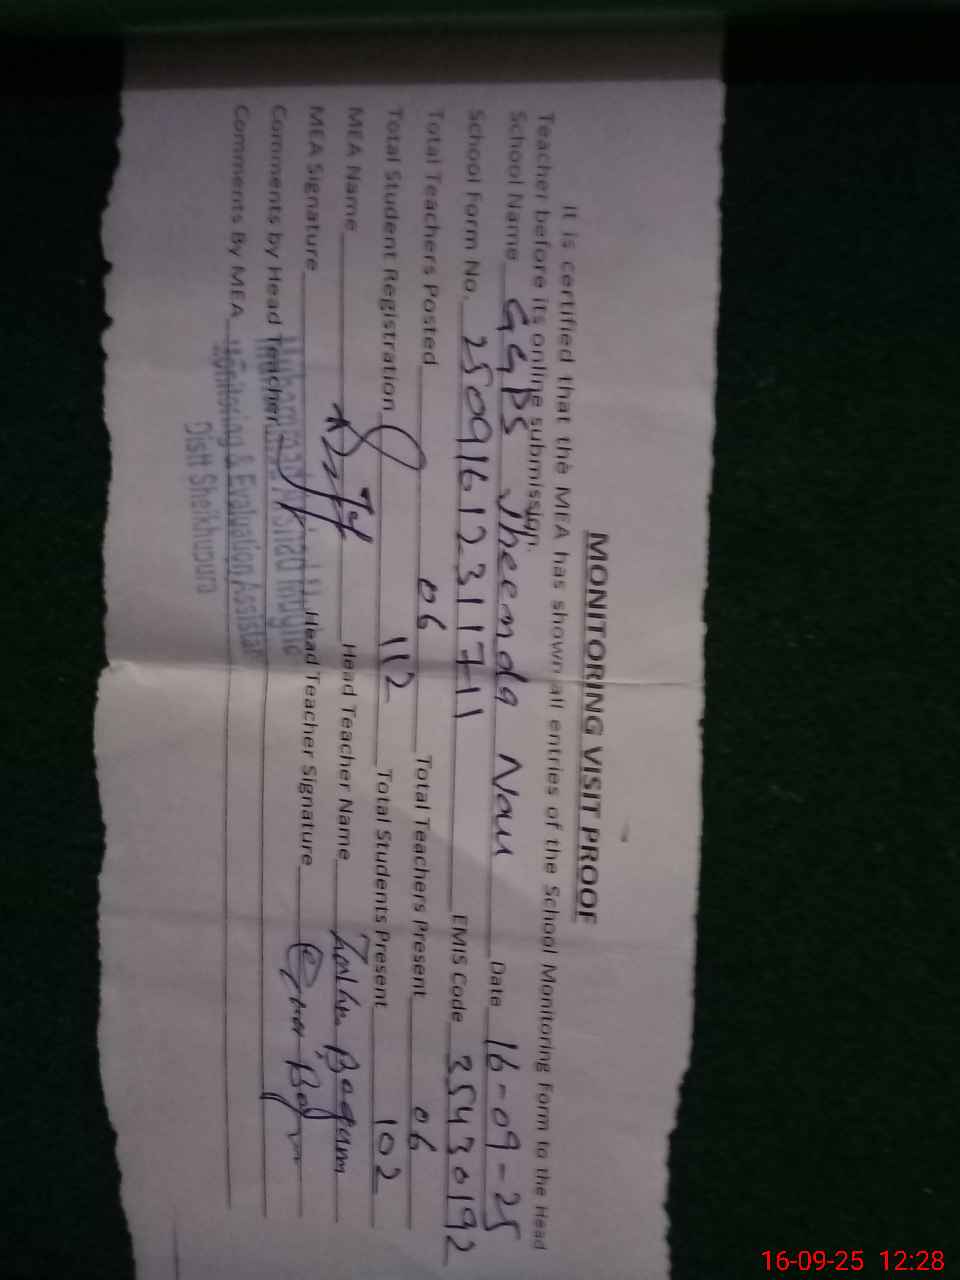 MONITORING VISIT PROOF
It is certified that the MEA has shown all entries of the School Monitoring Form to the Head
Teacher before its online submission.
School Name GGPS Jheemda Nau Date 16-09-25
School Form No. 250916123171 1 EMIS Code 35430192
Total Teachers Posted 06 Total Teachers Present 06
Total Student Registration 112 Total Students Present 102
MEA Name Head Teacher Name Begum
MEA Signature Head Teacher Signature
Comments by Head Teacher
Comments By MEA
Monitoring & Evaluation Assistant
Distt Sheikhupura
16-09-25 12:28